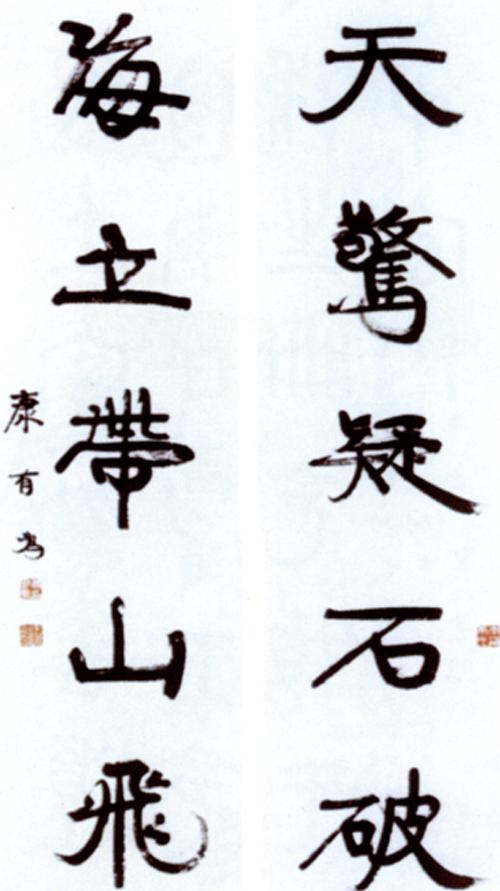 天驚疑石破
海立帶山飛
康有為